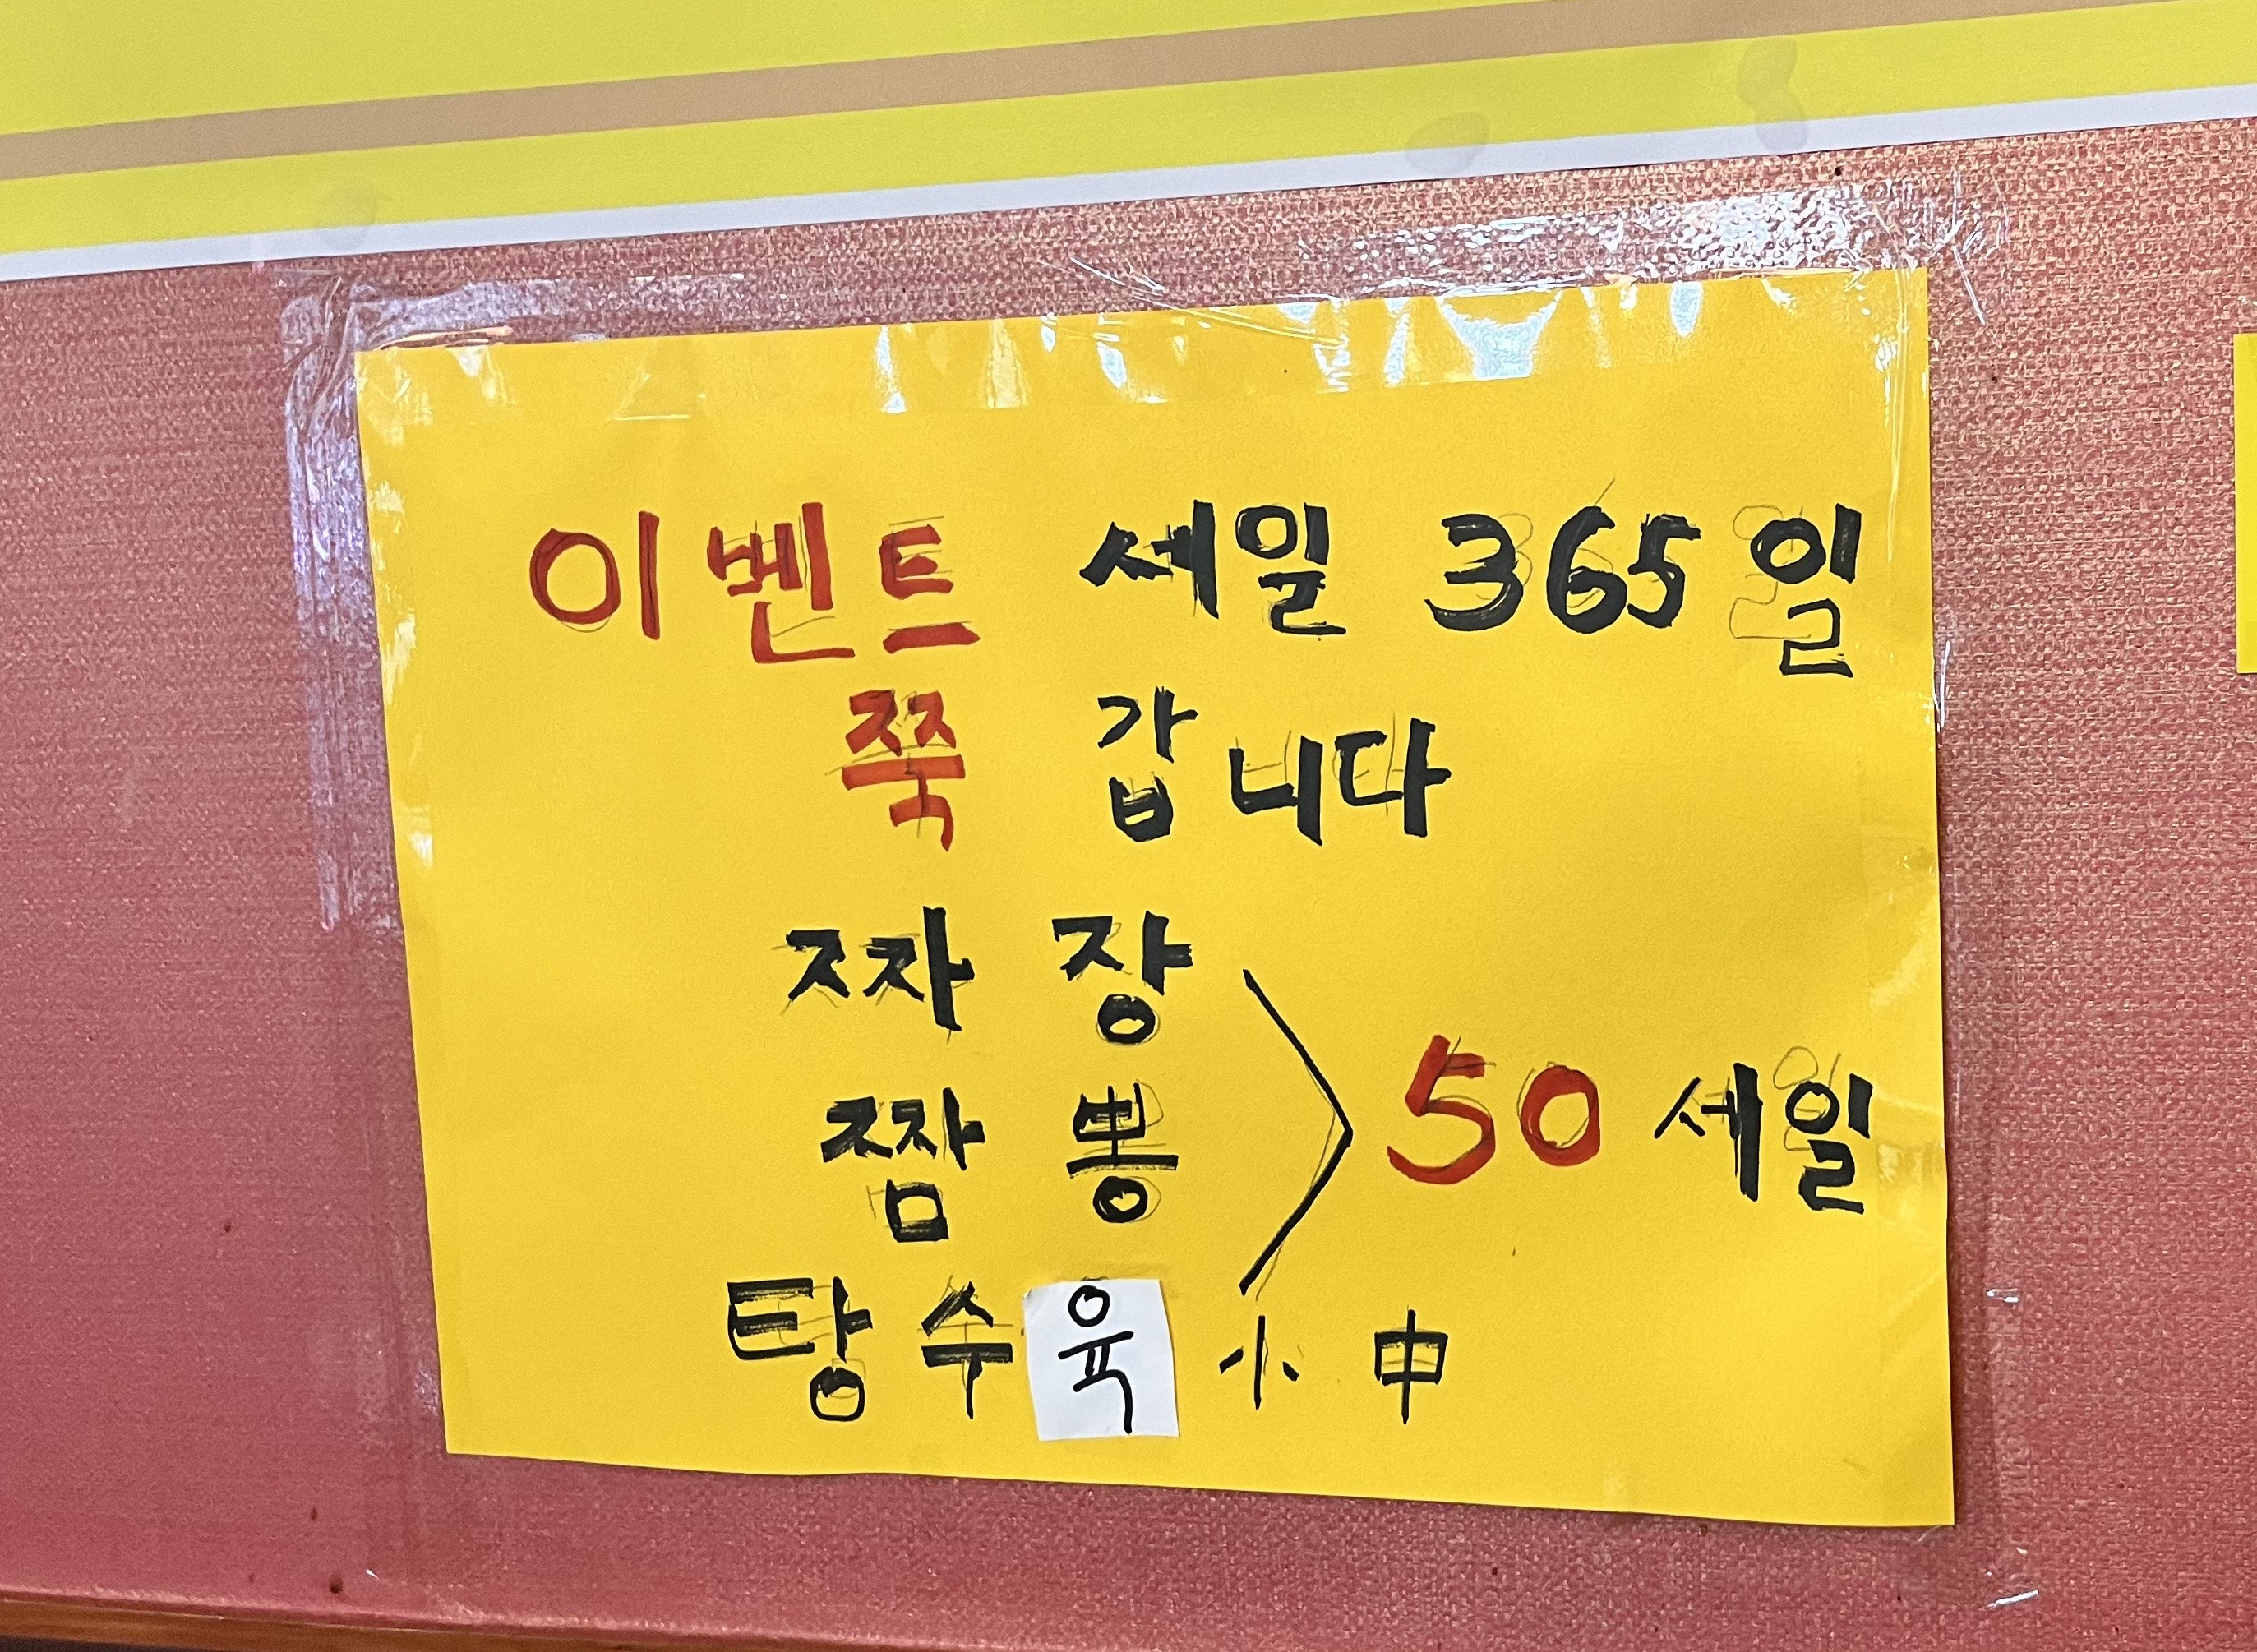 이벤트 세일 365일
쭉 갑니다
짜장
짬뽕
50 세일
탕수육 小 中